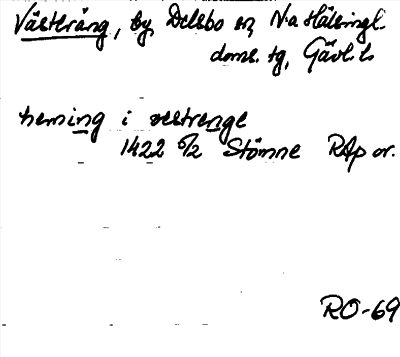 Västeräng, by Delsbo sn, N:a Hälsingl.
doms. tg, Gävl. l.
heming i vestrenge
1422 6/2 Stömne RAp or.
RO-69